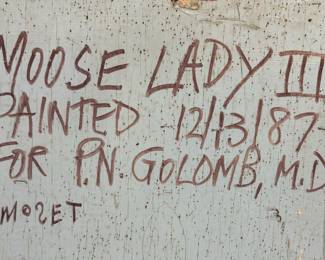 MOOSE LADY III
PAINTED 12/13/87-
FOR P.N. GOLOMB, M.D
MOSET